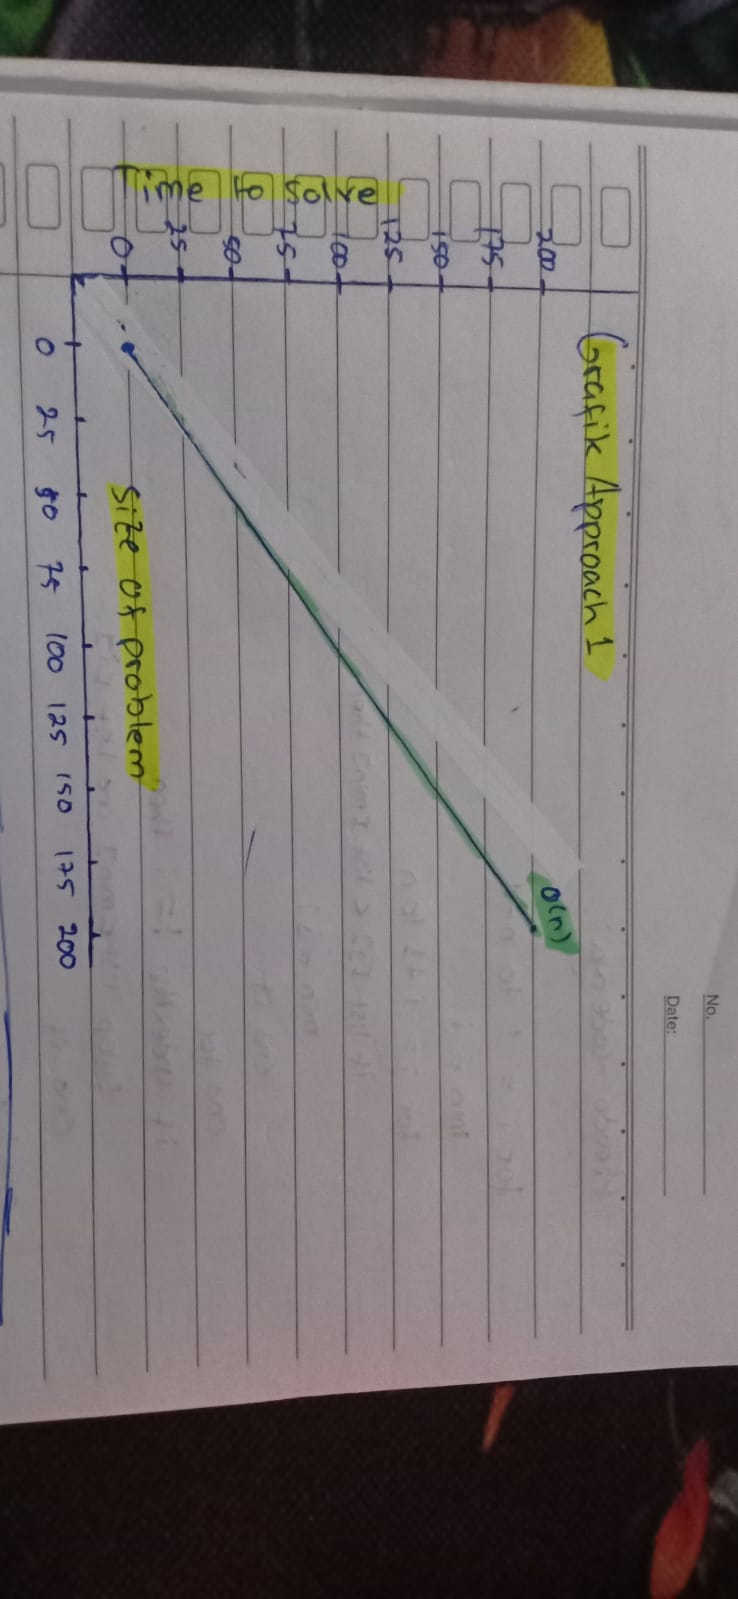 No.
Date:
Grafik Approach 1
Time to solve
200
175
150
125
100
75
50
25
0
O(n)
Size of problem
0 25 50 75 100 125 150 175 200